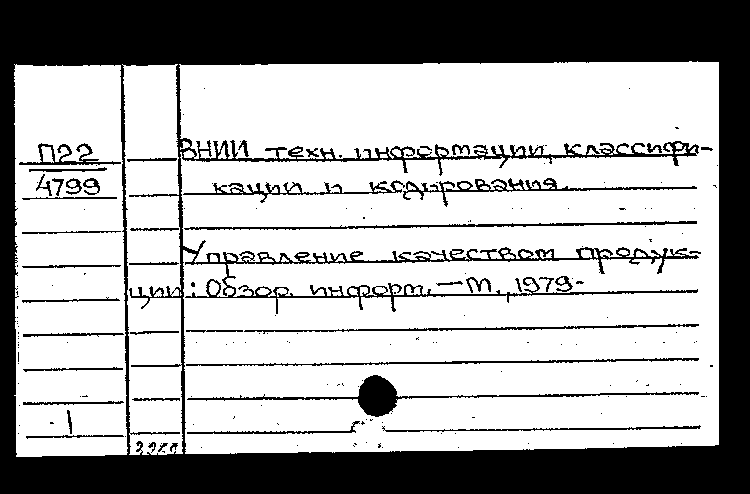 П22
4799
ВНИИ техн. информации, классифи-
кации и кодирования.
Управление качеством продук-
ции : Обзор. информ. — М., 1979-
1